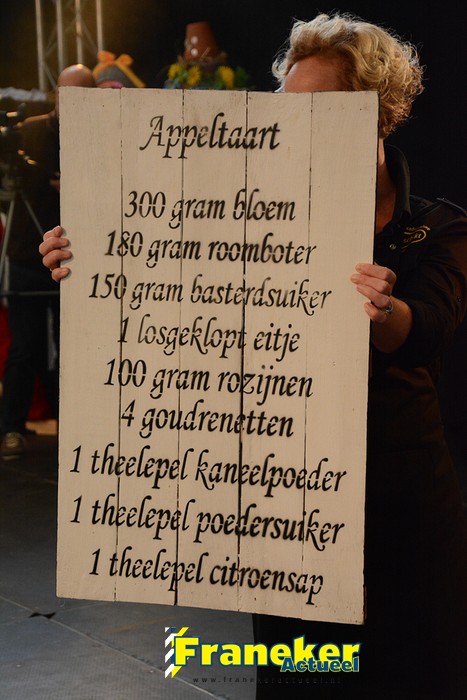 Appeltaart
300 gram bloem
180 gram roomboter
150 gram basterdsuiker
1 losgeklopt eitje
100 gram rozijnen
4 goudrenetten
1 theelepel kaneelpoeder
1 theelepel poedersuiker
1 theelepel citroensap
Franeker
Actueel
www.franekeractueel.nl